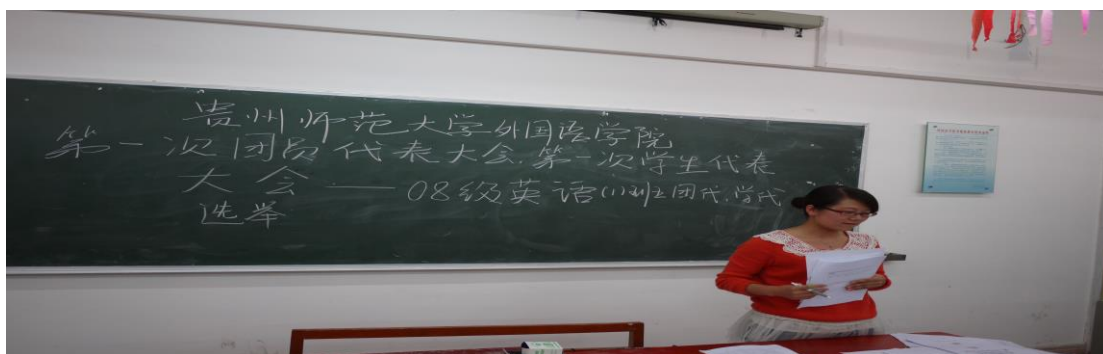 贵州师范大学外国语学院
第一次团员代表大会、第一次学生代表
大会——08级英语(1)班团代、学代
选举